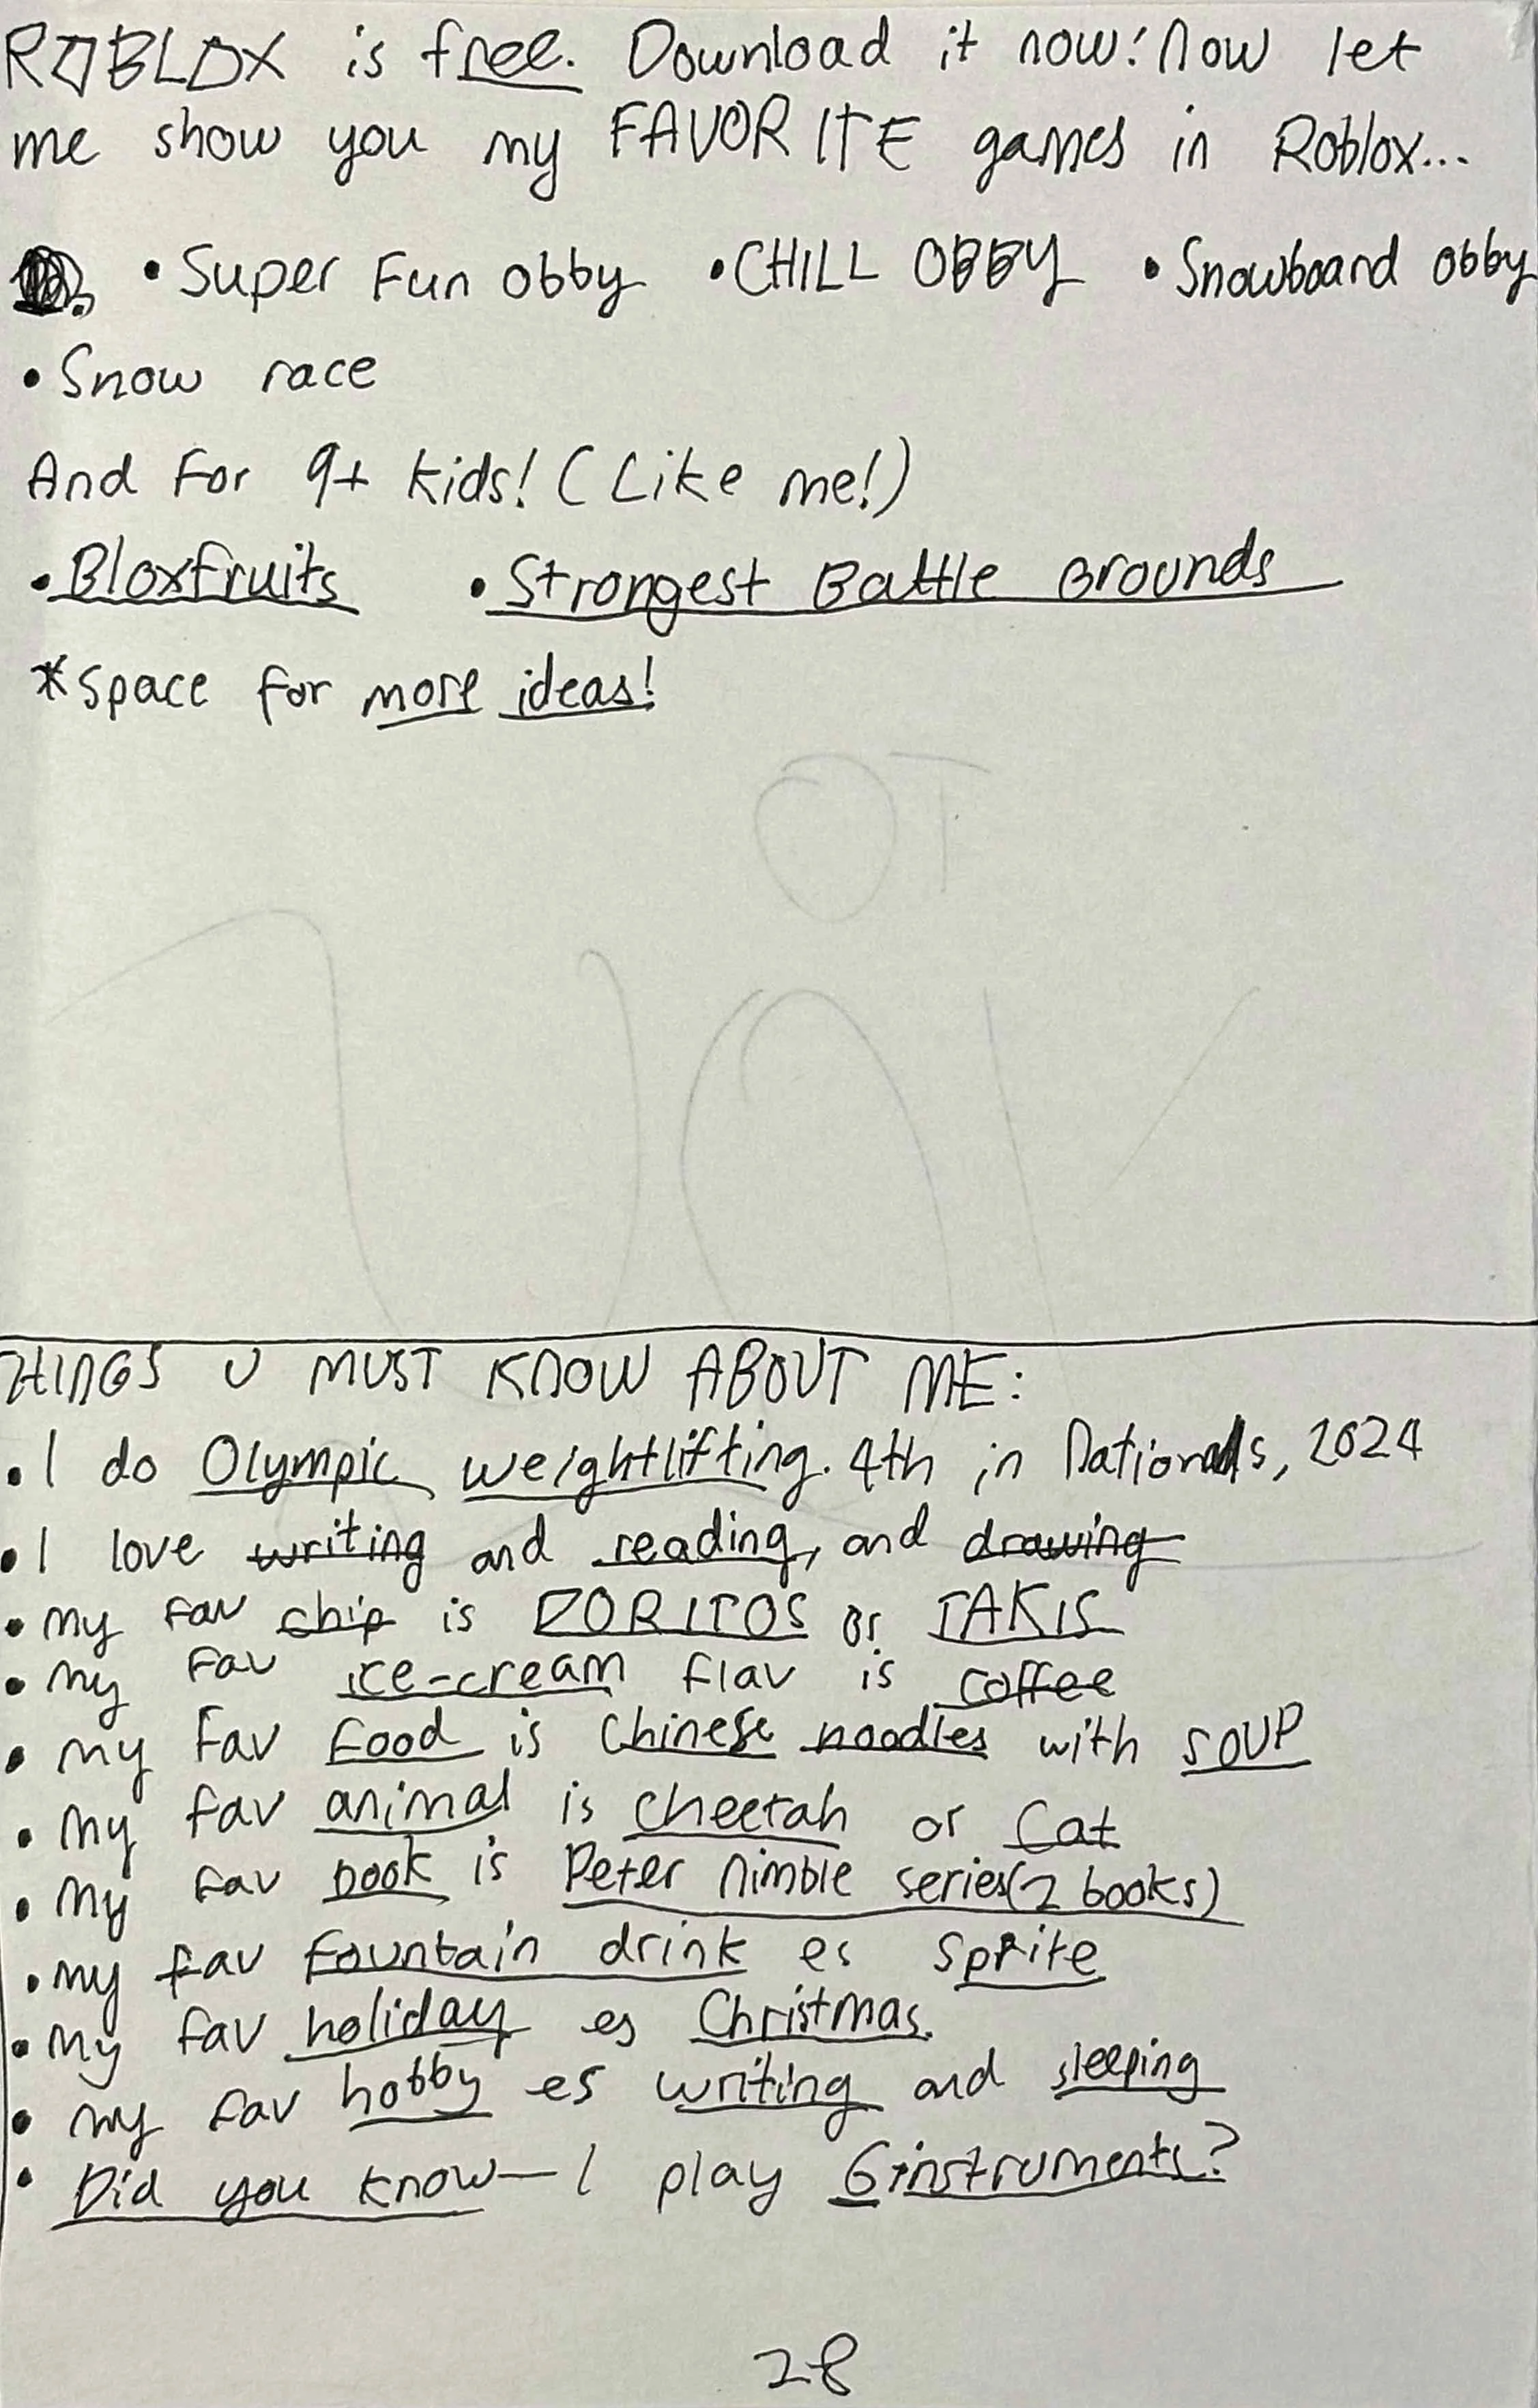 ROBLOX is free. Download it now! Now let
me show you my FAVORITE games in Roblox...
• Super Fun obby • CHILL OBBY • Snowboard obby
• Snow race
And For 9+ kids! (Like me!)
• Bloxfruits • Strongest Battle Grounds
*Space for more ideas!
THINGS U MUST KNOW ABOUT ME:
• I do Olympic weightlifting. 4th in Nationals, 2024
• I love writing and reading, and drawing
• my fav chip is DORITOS or TAKIS
• my fav ice-cream flav is coffee
• my fav food is Chinese noodles with SOUP
• my fav animal is cheetah or Cat
• my fav book is Peter Nimble series (2 books)
• my fav fountain drink es Sprite
• my fav holiday es Christmas.
• my fav hobby es writing and sleeping
• Did you know— I play 6 instruments?
28